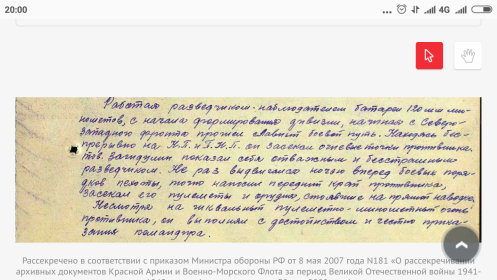 20:00
4G
Работая разведчиком-наблюдателем батареи 120 мм ми-
нометов, с начала формирования дивизии, начиная с Северо-
Западного фронта прошел славный боевой путь. Находясь бес-
прерывно на К.П. и П.Н.П. он засекал огневые точки противника.
тов. Загидулин показал себя отважным и бесстрашным
разведчиком. Не раз выдвигаясь ночью вперед боевых поряд-
ков пехоты, точно наносил передний край противника,
засекал его пулеметы и орудия, стоявшие на прямой наводке.
Несмотря на шквальный пулеметно-минометный огонь
противника, он выполнял с достоинством и честью прика-
зания командира.
Рассекречено в соответствии с приказом Министра обороны РФ от 8 мая 2007 года N181 «О рассекречивании
архивных документов Красной Армии и Военно-Морского Флота за период Великой Отечественной войны 1941-